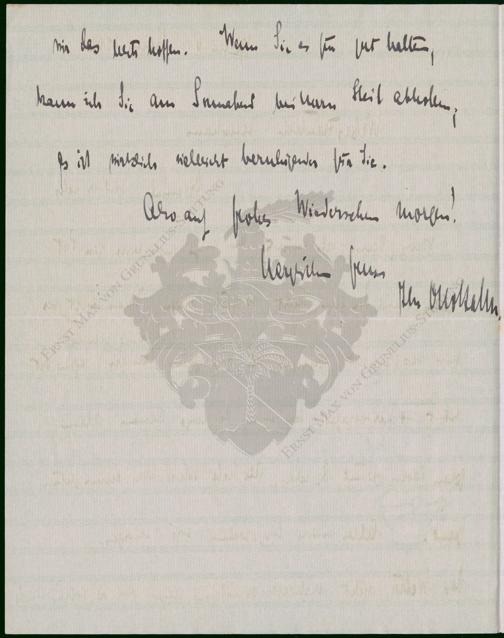 wir das beste hoffen. Wenn Sie es für gut halten,
kann ich Sie am Sonnabend bei Herrn Steil abholen;
es ist vielleicht beruhigender für Sie.
Also auf frohes Wiedersehen morgen!
Herzlichen Gruss
Ihr Otto Hahn.
ERNST MAX VON GRUNELIUS-STIFTUNG
ERNST MAX VON GRUNELIUS-